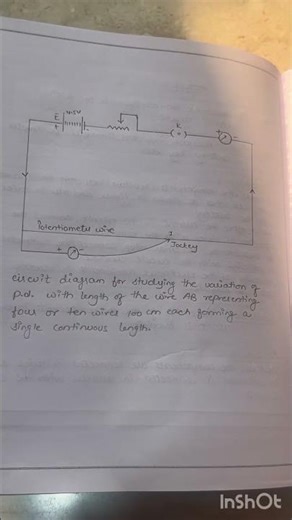 E
K
+
-
( • )
+
-
Potentiometer wire
J
Jockey
+
-
circuit diagram for studying the variation of
p.d. with length of the wire AB representing
four or ten wires 100 cm each forming a
single continuous length.
InShOt